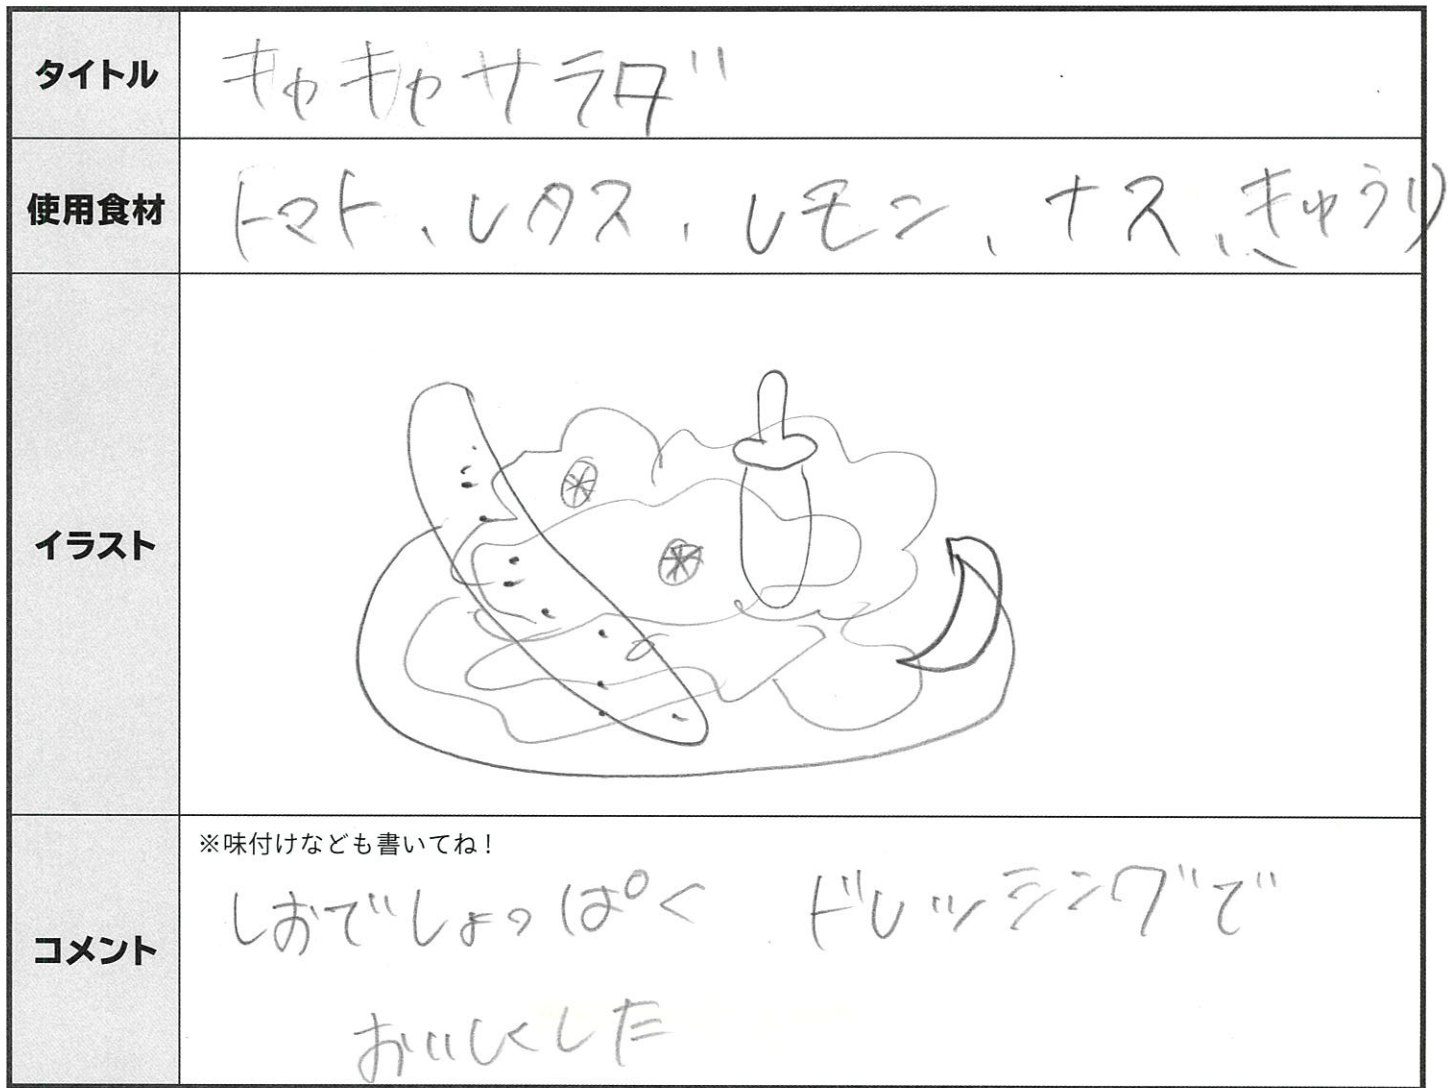 タイトル
キャキャサラダ
使用食材
トマト、レタス、レモン、ナス、きゅうり
イラスト
コメント
※味付けなども書いてね!
しおでしょっぱく ドレッシングで
おいしくした